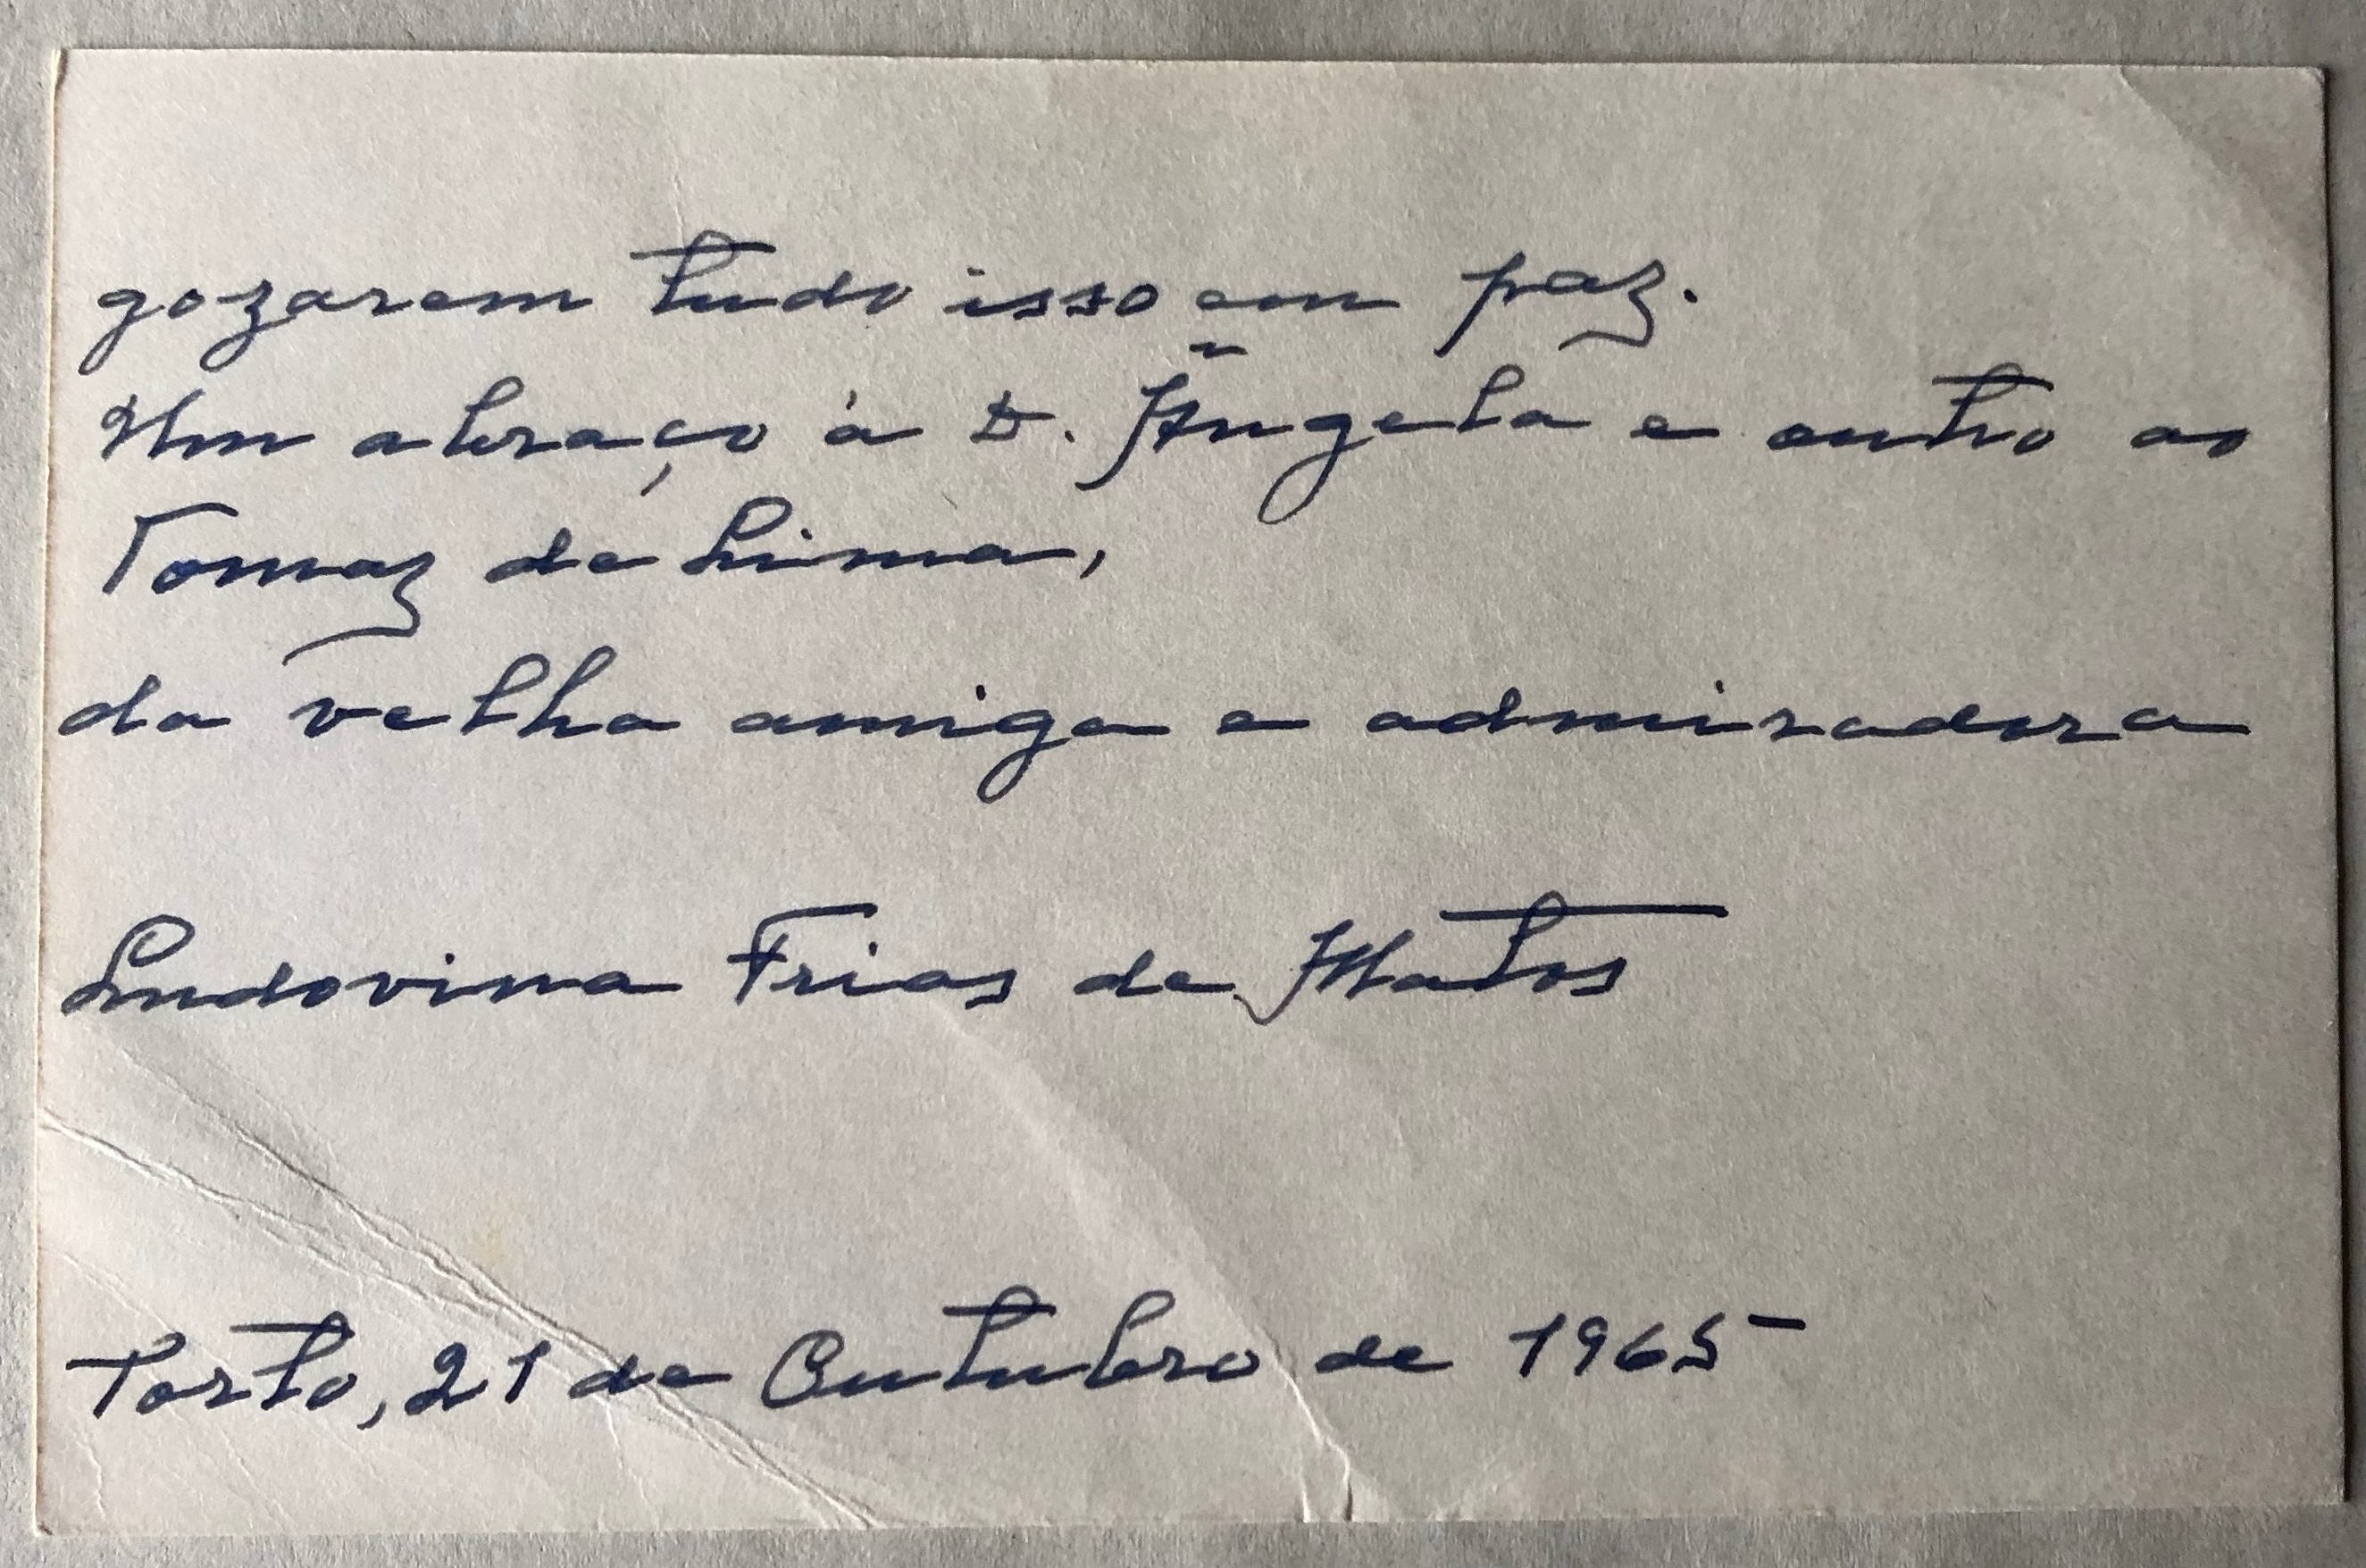 gozarem tudo isso em paz.
Um abraço à D. Ângela e outro ao
Tomaz de Lima,
da velha amiga e admiradora
Ludovina Frias de Matos
Porto, 21 de Outubro de 1965